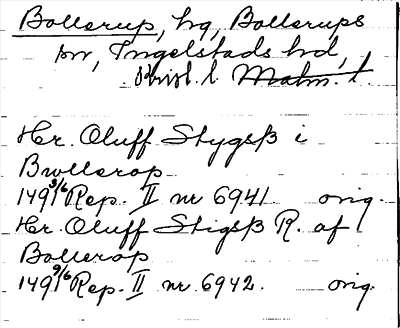 Bollerup, hg, Bollerups
sn, Ingelstads hd,
Krist. l. Malm. l.
Hr. Oluff Stygsß i
Brollerop
1491 9/6 Rep. II nr 6941. orig.
Hr. Oluff Stigsß R. af
Bollerop
1491 9/6 Rep. II nr 6942. orig.